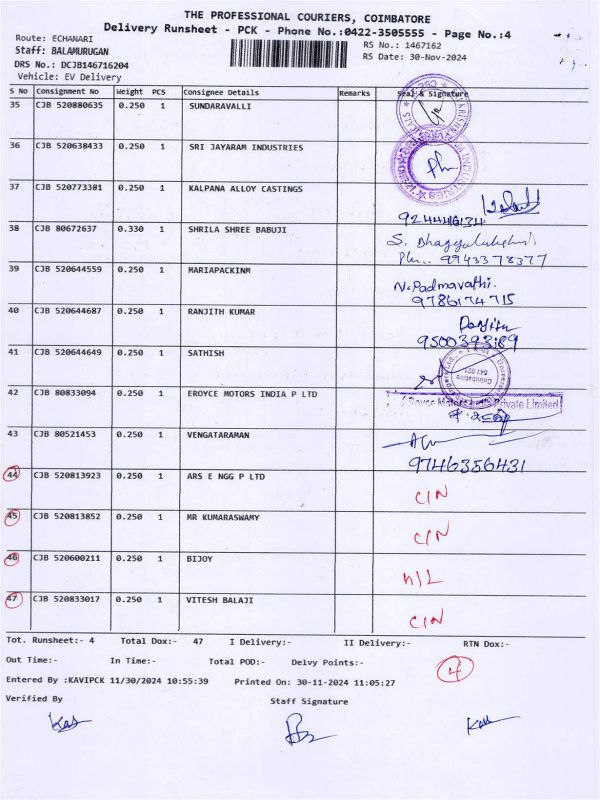 THE PROFESSIONAL COURIERS, COIMBATORE
Delivery Runsheet - PCK - Phone No.:0422-3505555 - Page No.:4
Route: ECHANARI RS No.: 1467162
Staff: BALAMURUGAN RS Date: 30-Nov-2024
DRS No.: DCJB146716204
Vehicle: EV Delivery
S No Consignment No Weight PCS Consignee Details Remarks Seal & Signature
35 CJB 520880635 0.250 1 SUNDARAVALLI
36 CJB 520638433 0.250 1 SRI JAYARAM INDUSTRIES
37 CJB 520773381 0.250 1 KALPANA ALLOY CASTINGS
38 CJB 80672637 0.330 1 SHRILA SHREE BABUJI S. Bhagyalakshmi
Ph.. 9943378377
39 CJB 520644559 0.250 1 MARIAPACKINM N. Padmavathi.
9786174715
40 CJB 520644687 0.250 1 RANJITH KUMAR
41 CJB 520644649 0.250 1 SATHISH
Coimbatore
641 021
42 CJB 80833094 0.250 1 EROYCE MOTORS INDIA P LTD Royce Motors India Private Limited
43 CJB 80521453 0.250 1 VENGATARAMAN
9746356431
44 CJB 520813923 0.250 1 ARS E NGG P LTD C/N
45 CJB 520813852 0.250 1 MR KUMARASWAMY C/N
46 CJB 520600211 0.250 1 BIJOY N/L
47 CJB 520833017 0.250 1 VITESH BALAJI C/N
Tot. Runsheet:- 4 Total Dox:- 47 I Delivery:- II Delivery:- RTN Dox:-
Out Time:- In Time:- Total POD:- Delvy Points:- 4
Entered By :KAVIPCK 11/30/2024 10:55:39 Printed On: 30-11-2024 11:05:27
Verified By Staff Signature